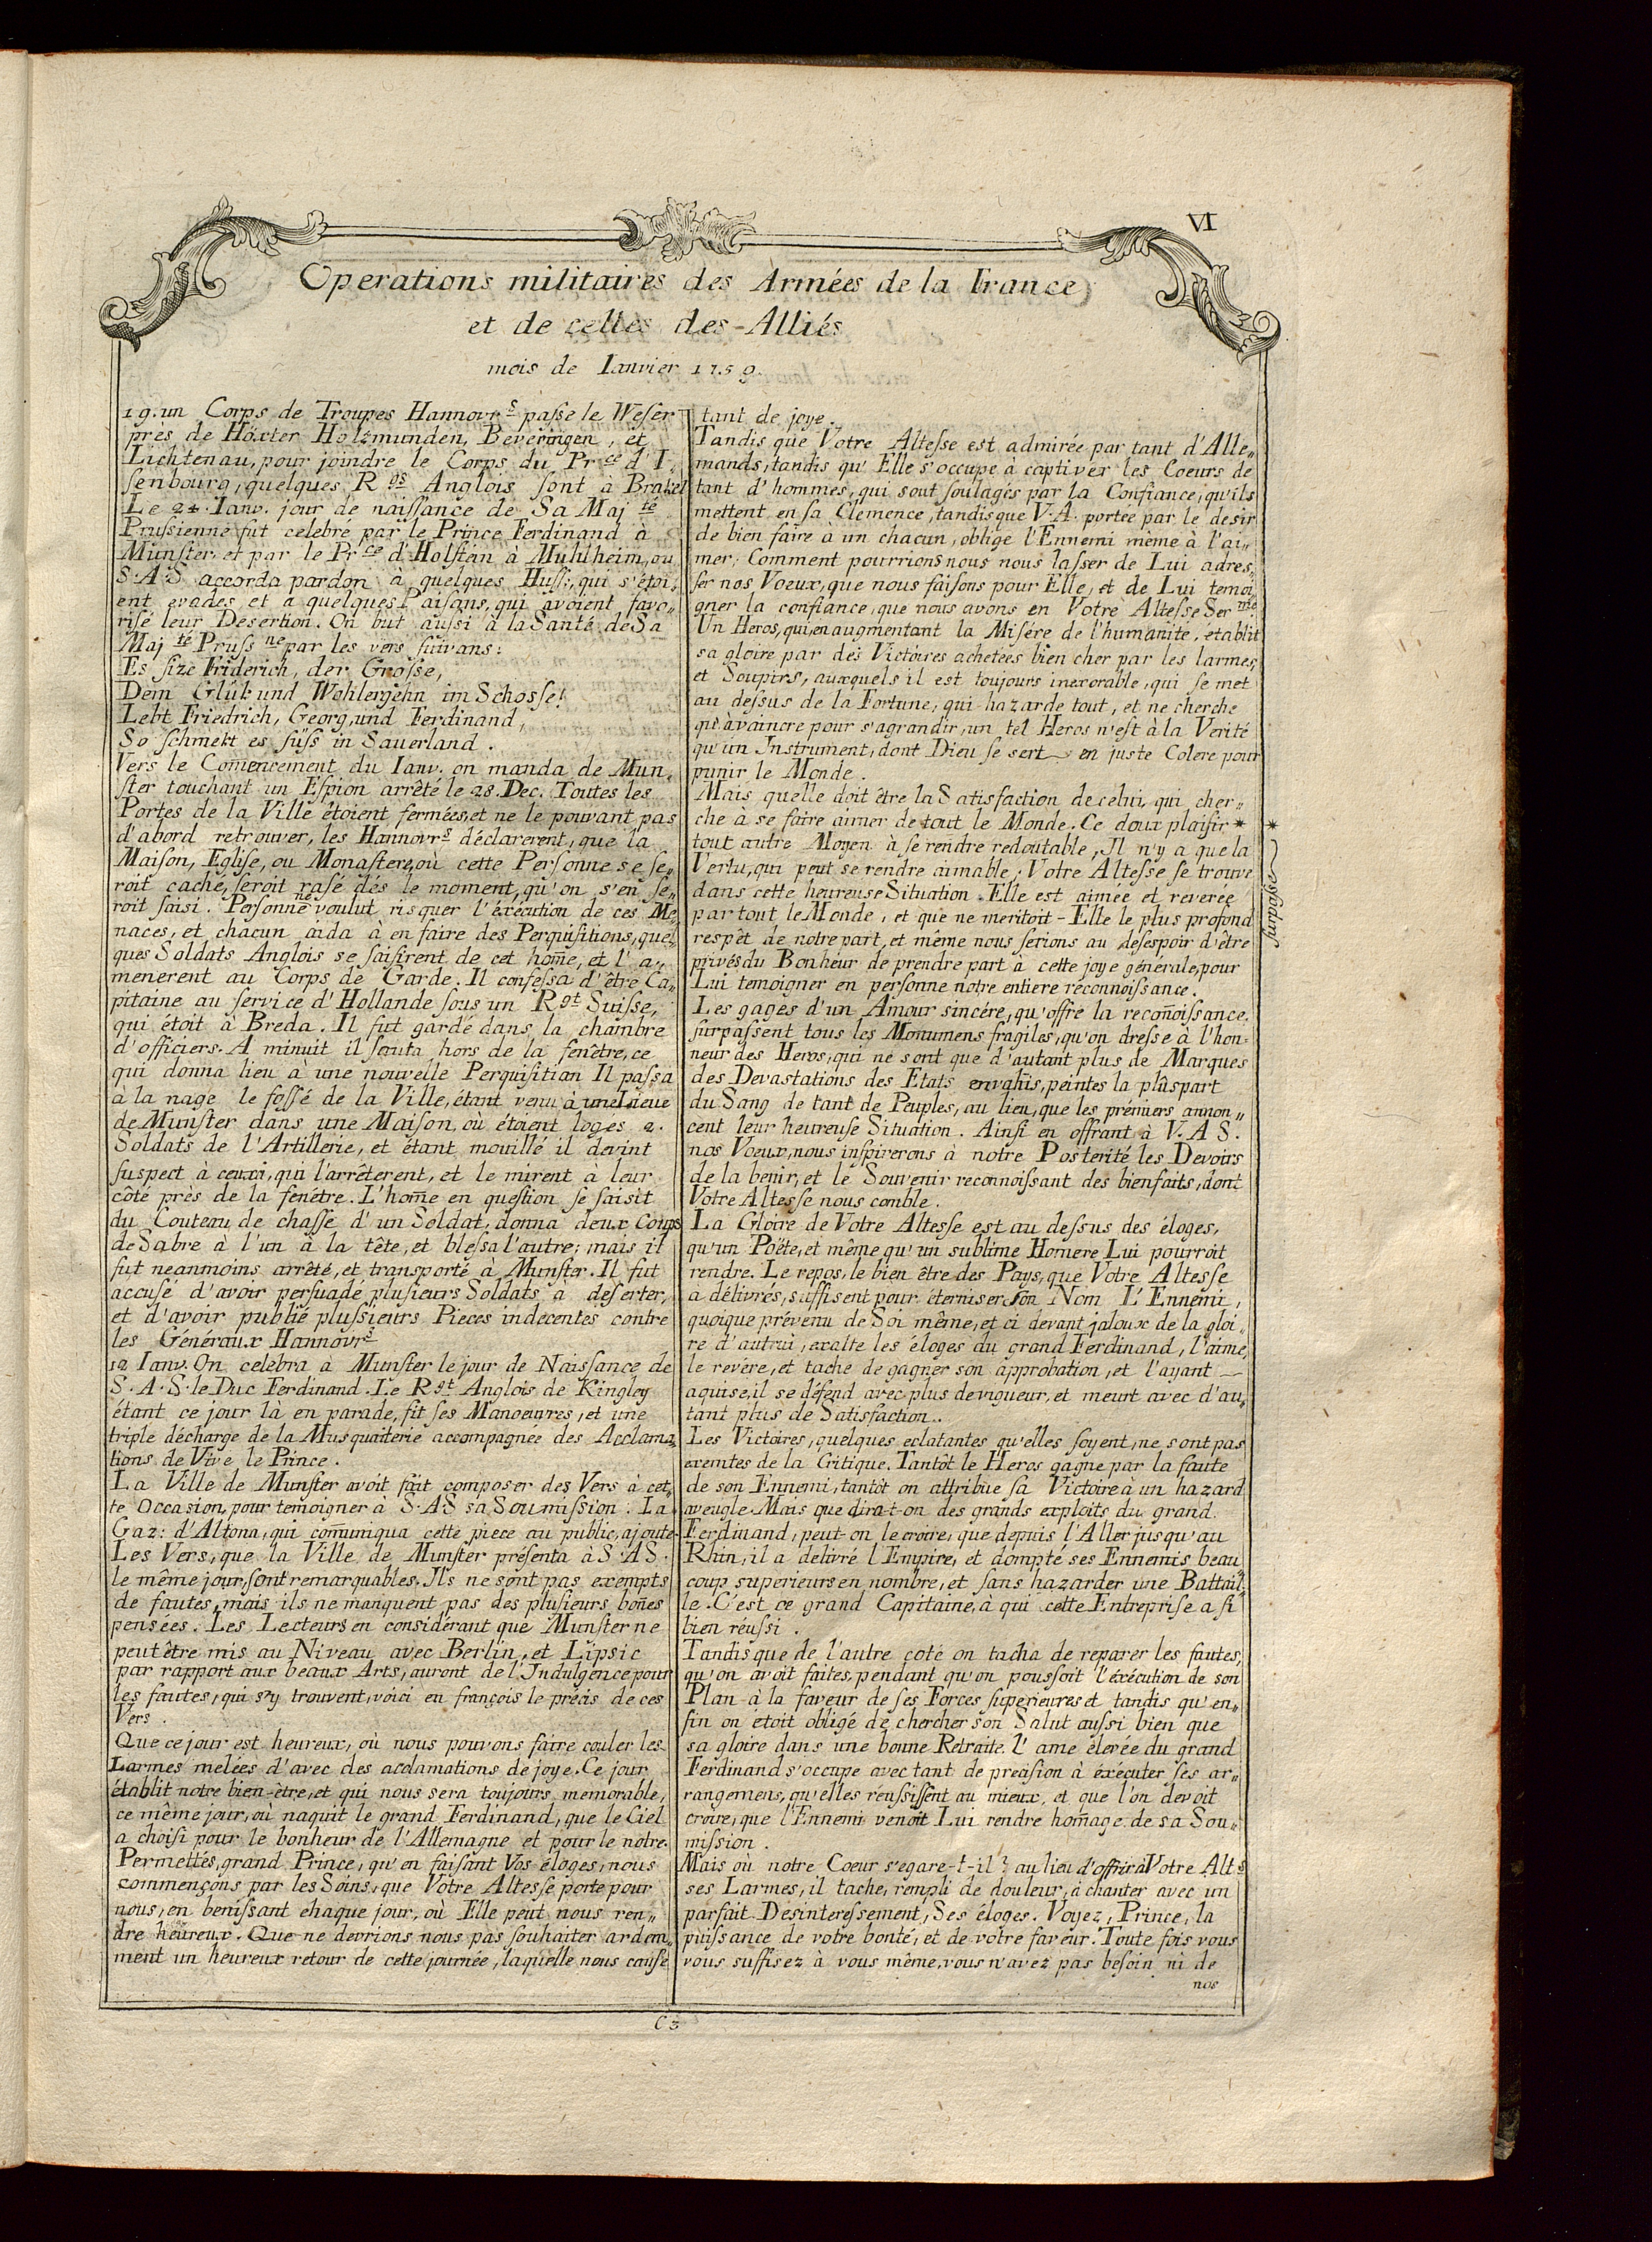 VI
Operations militaires des Armées de la France
et de celles des-Alliés
mois de Ianvier 1759.
19. un Corps de Troupes Hannovr.s paſse le Weſer
près de Höxter Holzmunden, Beveringen, et
Lichtenau, pour joindre le Corps du Pr.ce d'I„
ſenbourg, quelques R.gs Anglois ſont à Brakel
Le 24. Ianv. jour de naiſſance de Sa Maj.té
Pruſsienne fut celebré par le Prince Ferdinand à
Munſter, et par le Pr.ce d'Holſtein à Muhlheim, ou
S.A.S accorda pardon à quelques Huſſ:, qui s'étoi„
ent evades, et a quelques Paiſans, qui avoient favo„
riſé leur Desertion. On but auſsi à la Santé de Sa
Maj.té Pruſs.ne par les vers ſuivans:
Es ſize Friderich, der Groſse,
Dem Glük und Wohlergehn im Schosſe!
Lebt Friedrich, Georg, und Ferdinand,
So ſchmekt es ſüſs in Sauerland.
Vers le Com̄encement du Ianv. on manda de Mun„
ſter touchant un Eſpion arrêté le 28. Dec. Toutes les
Portes de la Ville étoient fermées, et ne le pouvant pas
d'abord retrouver, les Hannovr.s déclarerent, que la
Maison, Egliſe, ou Monaſtere, où cette Perſonne se ſe„
roit caché, ſeroit rasé dès le moment, qu'on s'en ſe„
roit ſaisi. Perſonne ne voulut risquer l'éxécution de ces Me„
naces, et chacun aida à en faire des Perquiſitions, quel„
ques Soldats Anglois se ſaiſirent de cet hom̄e, et l'a„
menerent au Corps de Garde. Il confeſsa d'être Ca„
pitaine au ſervice d'Hollande ſous un R.gt Suiſſe,
qui étoit à Breda. Il fut gardé dans la chambre
d'officiers. A minuit il ſauta hors de la fenêtre, ce
qui donna lieu à une nouvelle Perquiſitian Il paſsa
à la nage le foſſé de la Ville, étant venu à une Lieue
de Munſter dans une Maiſon, où étoient loges 2.
Soldats de l'Artillerie, et étant mouillé il devint
ſuspect à ceuxci, qui l'arrêterent, et le mirent à leur
côté près de la fenétre. L'hom̄e en queſtion ſe ſaiſit
du Couteau de chaſſe d'un Soldat, donna deux Coups
de Sabre à l'un à la tête, et bleſsa l'autre; mais il
fut neanmoins arrêté, et transporté à Munſter. Il fut
accusé d'avoir perſuadé pluſieurs Soldats a deſerter,
et d'avoir publié pluſſieurs Pieces indecentes contre
les Généraux Hannovr.s
12 Ianv. On celebra a Munſter le jour de Naiſſance de
S.A.S. le Duc Ferdinand. Le R.gt Anglois de Kingley
étant ce jour là en parade, fit ſes Manoeuvres, et une
triple décharge de la Musquaiterie accompagnée des Acclama„
tions de Vive le Prince.
La Ville de Munſter avoit fait composer des Vers à cet„
te Occasion, pour temoigner à S.AS sa Soumission. La
Gaz: d'Altona, qui com̄uniqua cette piece au public, ajoute
Les Vers, que la Ville de Munſter préſenta à S.AS.
le même jour, ſont remarquables. Ils ne sont pas exempts
de fautes, mais ils ne manquent pas des pluſieurs bon̄es
pensées. Les Lecteurs en considérant que Munſter ne
peut être mis au Niveau avec Berlin, et Lipsic
par rapport aux beaux Arts, auront de l'Indulgence pour
les fautes, qui s'y trouvent, voici en françois le précis de ces
Vers.
Que ce jour est heureux, où nous pouvons faire couler les
Larmes melées d'avec des acclamations de joye. Ce jour
établit notre bien-ètre, et qui nous sera toujoirs memorable,
ce même jour, où naquit le grand Ferdinand, que le Ciel
a choiſi pour le bonheur de l'Allemagne et pour le notre.
Permettés, grand Prince, qu'en faiſant Vos éloges, nous
commençons par les Soins, que Votre Alteſſe porte pour
nous, en beniſſant chaque jour, où Elle peut nous ren„
dre heureux. Que ne devrions nous pas ſouhaiter ardem„
ment un heureux retour de cette journée, laquelle nous cauſe
tant de joye.
Tandis que Votre Alteſse est admirée par tant d'Alle„
mands, tandis qu'Elle s'occupe à captiver les Coeurs de
tant d'hommes, qui sout ſoulagés par la Confiance, qu'ils
mettent en ſa Clemence, tandis que V.A. portée par le desir
de bien faire à un chacun, oblige l'Ennemi même à l'ai„
mer; Comment pourrions nous nous laſser de Lui adres„
ſer nos Voeux, que nous faiſons pour Elle, et de Lui temoi„
gner la confiance, que nous avons en Votre Alteſse Ser.me
Un Heros, qui, en augmentant la Misére de l'humanite, etablit
sa gloire par des Victoires achetees bien cher par les larmes,
et Soupirs, auxquels il est toujours inexorable, qui ſe met
au deſsus de la Fortune, qui hazarde tout, et ne cherche
qu'à vaincre pour s'agrandir, un tel Heros n'eſt à la Verité
qu'un Instrument, dont Dieu ſe sert en juste Colere pour
punir le Monde.
Mais quelle doit être la Satisfaction de celui, qui cher„
che à se faire aimer de tout le Monde. Ce doux plaiſir *
tout autre Moyen à ſe rendre redoutable, Il n'y a que la
Vertu, qui peut se rendre aimable; Votre Alteſse ſe trouve
dans cette heureuse Situation. Elle est aimée et reverée
par tout le Monde, et que ne meritoit-Elle le plus profond
respêt de notre part, et même nous ſerions au deſespoir d'être
privés du Bonheur de prendre part à cette joye générale, pour
Lui temoigner en perſonne notre entiere réconnoiſsance.
Les gages d'un Amour sincére, qu'offre la recon̄oiſsance,
ſurpaſsent tous les Monumens fragiles, qu'on dreſse à l'hon„
neur des Heros, qui ne sont que d'autant plus de Marques
des Devastations des Etats envahis, peintes la plûspart
du Sang de tant de Peuples, au lieu, que les prémiers annon„
cent leur heureuſe Situation. Ainſi en offrant à V.A S.
nos Voeux, nous inſpirerons à notre Posterité les Devoirs
de la benir, et le Souvenir reconnoiſsant des bienfaits, dont
Votre Alteſse nous comble.
La Gloire de Votre Alteſse est au deſsus des éloges,
qu'un Poëte, et même qu'un sublime Homere Lui pourroit
rendre. Le repos, le bien être des Pays, que Votre Alteſse
a délivrés, suffisent pour éterniser ſon Nom L'Ennemi,
quoique prévenu de Soi même, et ci devant jaloux de la gloi„
re d'autrui, exalte les éloges du grand Ferdinand, l'aime,
le revére, et tache de gagner son approbation, et l'ayant
aquise, il se défend avec plus de vigueur, et meurt avec d'au„
tant plus de Satisfaction..
Les Victoires, quelques eclatantes qu'elles ſoyent, ne sont pas
exemtes de la Critique. Tantôt le Heros gagne par la faute
de son Ennemi, tantôt on attribue ſa Victoire à un hazard
aveugle. Mais que dira-t-on des grands exploits du grand
Ferdinand, peut-on le croire, que depuis l'Aller jusqu'au
Rhin, il a delivré l'Empire, et dompté ses Ennemis beau„
coup superieurs en nombre, et ſans hazarder une Battail„
le. C'est ce grand Capitaine, à qui cette Entrepriſe a ſi
bien réuſsi.
Tandis que de l'autre coté on tacha de reparer les fautes,
qu'on avoit faites, pendant qu'on pouſsoit l'éxécution de son
Plan à la faveur de ſes Forces ſuperieures et tandis qu'en„
fin on étoit obligé de chercher son Salut auſsi bien que
sa gloire dans une bonne Retraite. L'ame élevée du grand
Ferdinand s'occupe avec tant de precision à éxécuter ſes ar„
rangemens, qu'elles réuſsiſsent au mieux, et que l'on devoit
croire, que l'Ennemi venoit Lui rendre hom̄age de sa Sou„
miſsion.
Mais où notre Coeur s'egare-t-il? au lieu d'offrir à Votre Alt.s
ses Larmes, il tache, rempli de douleur, à chanter avec un
parfait Desintereſsement, Ses éloges. Voyez, Prince, la
puiſsance de votre bonté, et de votre faveur. Toute fois vous
vous suffisez à vous même, vous n'avez pas beſoin ni de
nos
* ſurpaſse
C 3